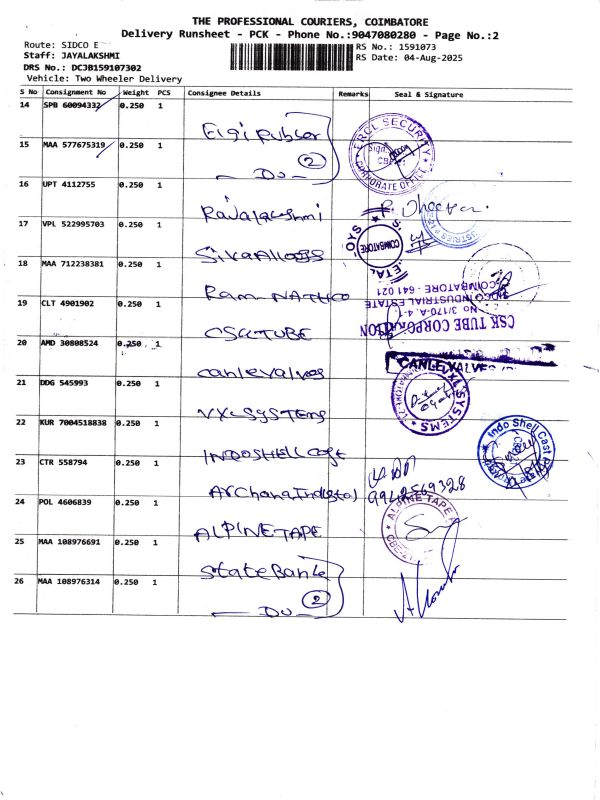 THE PROFESSIONAL COURIERS, COIMBATORE
Delivery Runsheet - PCK - Phone No.:9047080280 - Page No.:2
Route: SIDCO E
RS No.: 1591073
Staff: JAYALAKSHMI
RS Date: 04-Aug-2025
DRS No.: DCJB159107302
Vehicle: Two Wheeler Delivery
S No Consignment No Weight PCS Consignee Details Remarks Seal & Signature
14 SPB 60094332 0.250 1 Elgi Rubber
ERCL SECURITY
CORPORATE OFFICE
15 MAA 577675319 0.250 1 — Du — 2
16 UPT 4112755 0.250 1 Rajalakshmi
17 VPL 522995703 0.250 1 Siva Alloys
COIMBATORE
18 MAA 712238381 0.250 1 Ram NATHCO
19 CLT 4901902 0.250 1 CSK TUBE
CSK TUBE CORPORATION
No 3/170-A-4-1
SIDCO INDUSTRIAL ESTATE
COIMBATORE - 641 021
20 AMD 30808524 0.250 1 canlevalves
CANLE VALVES
21 DDG 545993 0.250 1 VXL SYSTEMS
VXL SYSTEMS
22 KUR 7004518838 0.250 1 INDOSHELL Cast
Indo Shell Cast
23 CTR 558794 0.250 1 Archana Industral
9942569328
24 POL 4606839 0.250 1 ALPINE TAPE
ALPINE TAPE
25 MAA 108976691 0.250 1 State Bank
26 MAA 108976314 0.250 1 — Du — 2